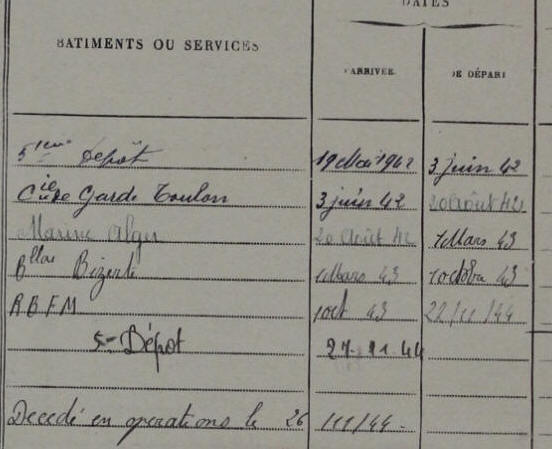 DATES
BATIMENTS OU SERVICES
ARRIVÉE
DE DÉPART
5ième Dépôt 19 Mai 1942 3 juin 42
Cie de Garde Toulon 3 juin 42 20 Août 42
Marine Alger 20 Août 42 1 Mars 43
Bllon Bizerte 1 Mars 43 1 octobre 43
RBFM 1 oct 43 22/11/44
5me Dépôt 27.11.44
Decedé en operations le 26 /11/44-